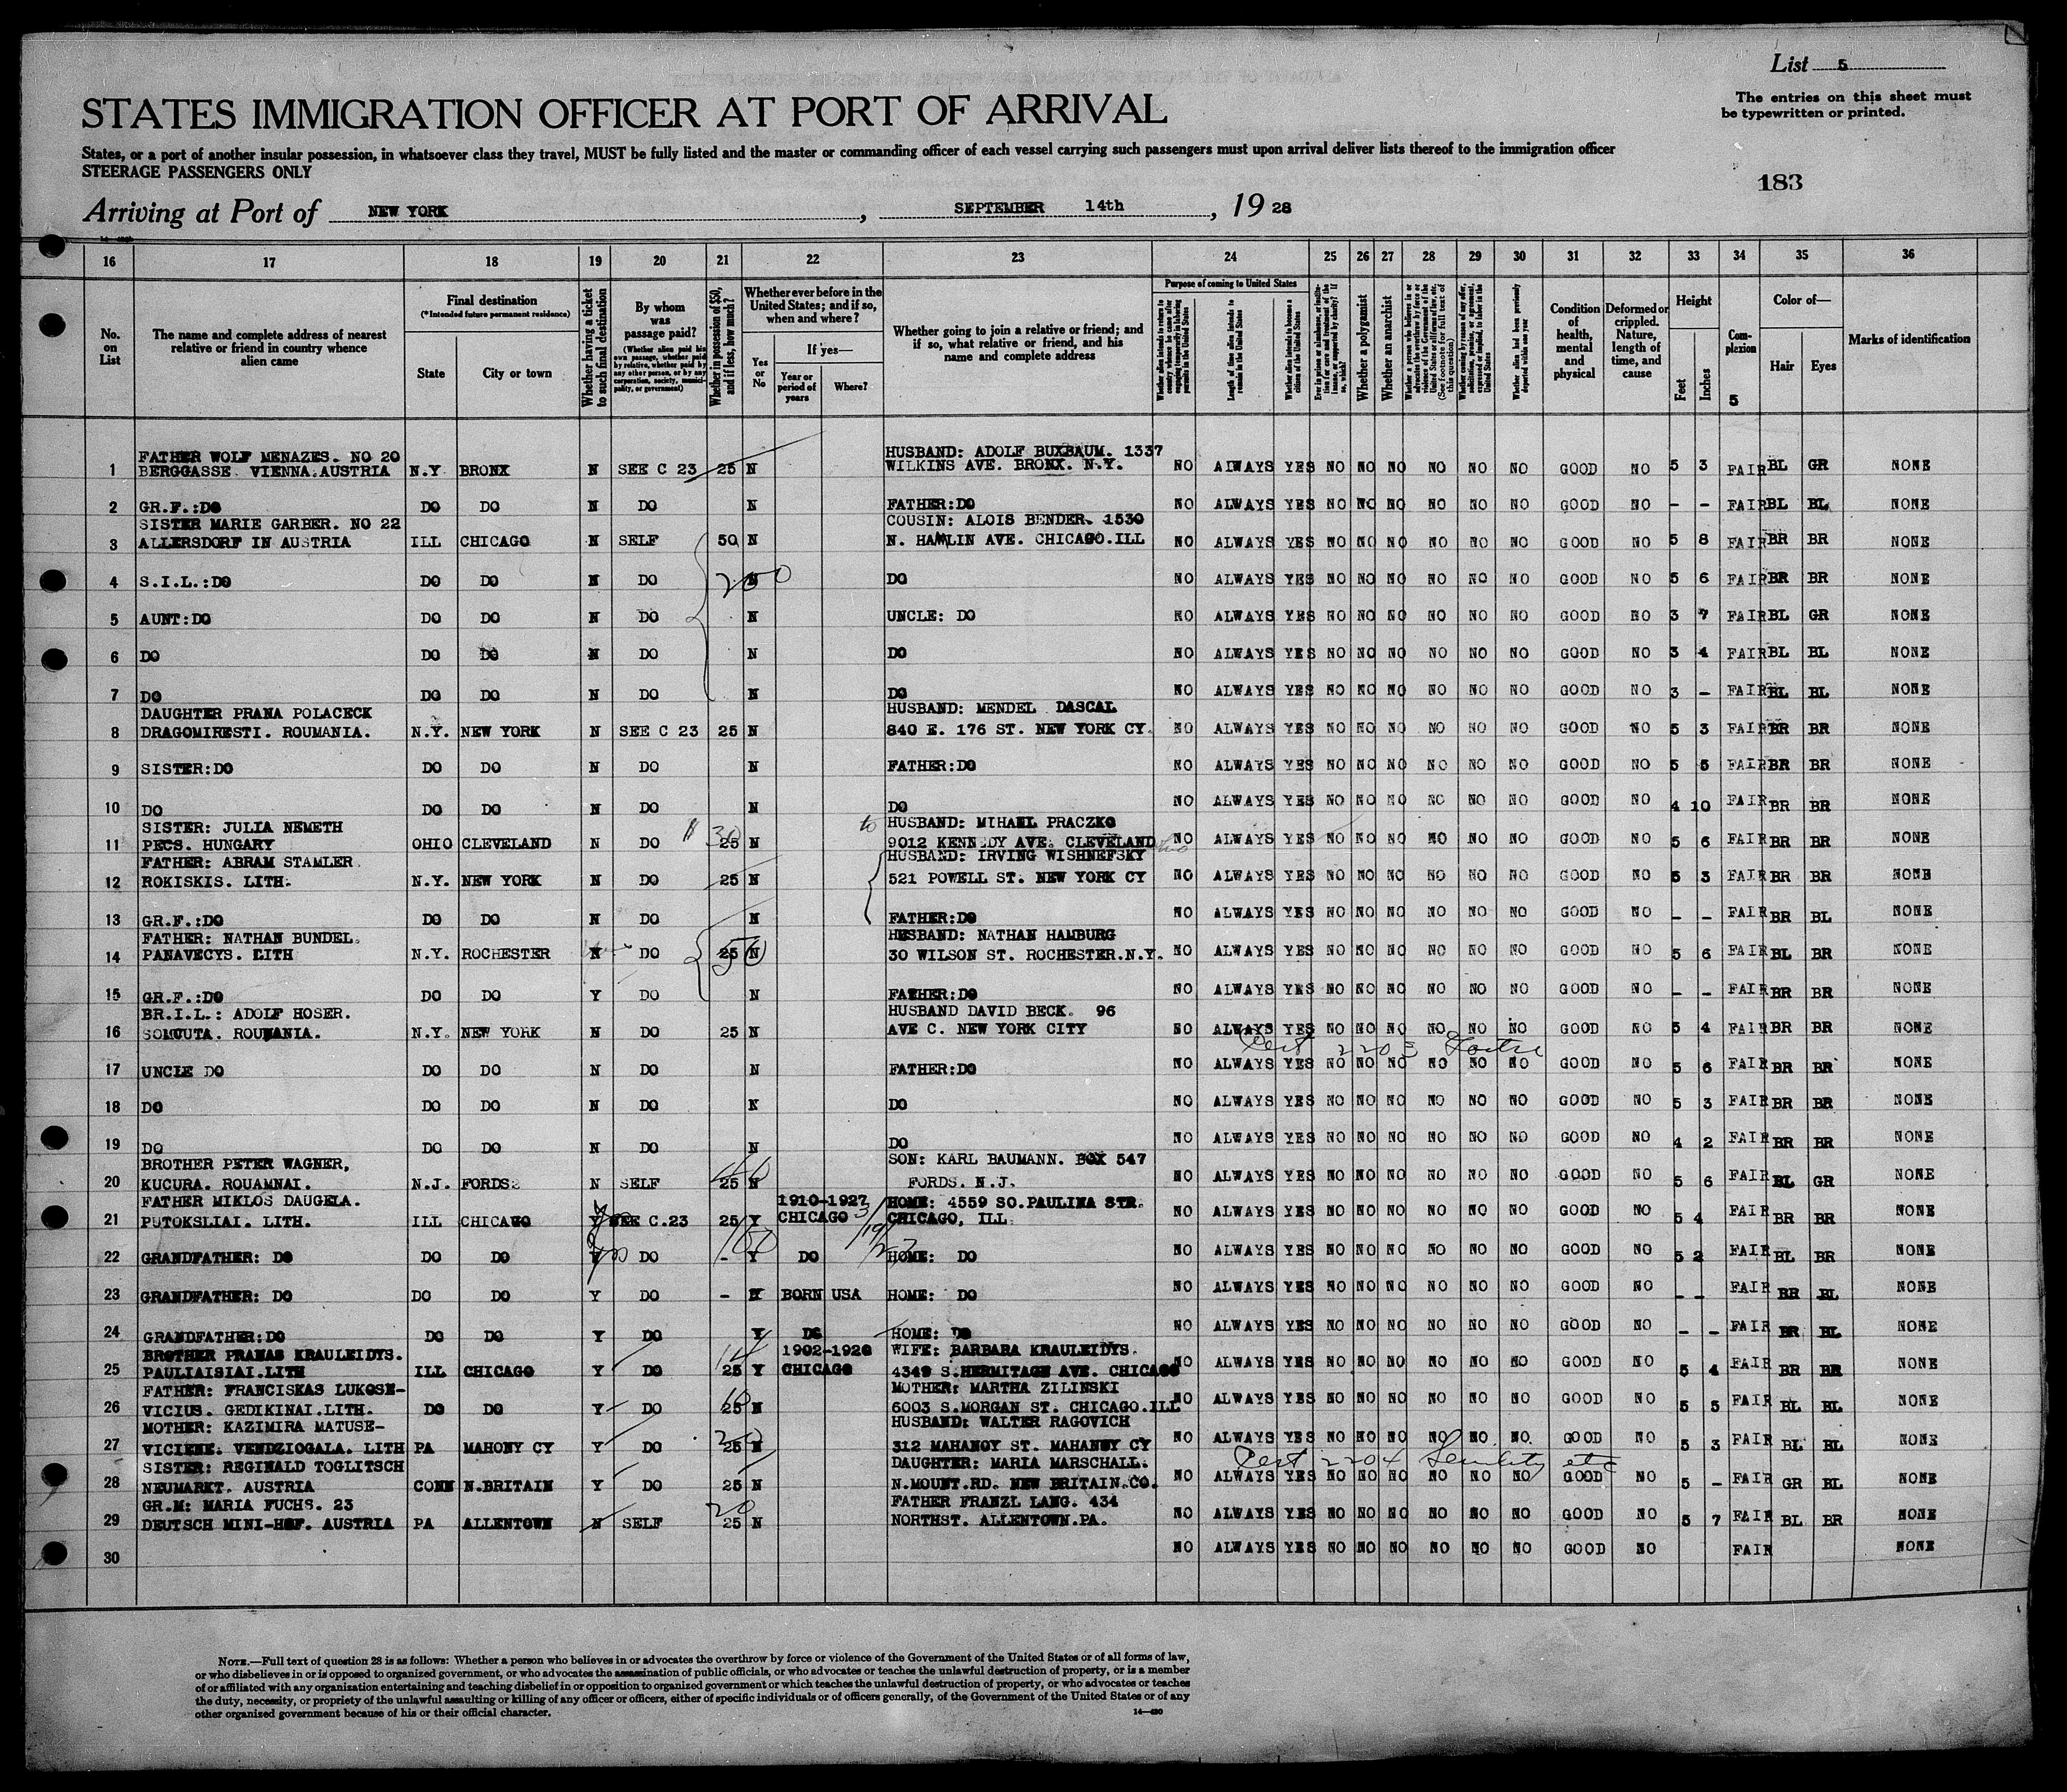 List 5
The entries on this sheet must
be typewritten or printed.
STATES IMMIGRATION OFFICER AT PORT OF ARRIVAL
States, or a port of another insular possession, in whatsoever class they travel, MUST be fully listed and the master or commanding officer of each vessel carrying such passengers must upon arrival deliver lists thereof to the immigration officer
STEERAGE PASSENGERS ONLY
183
Arriving at Port of NEW YORK, SEPTEMBER 14th, 19 28
16 17 18 19 20 21 22 23 24 25 26 27 28 29 30 31 32 33 34 35 36
No. on List
The name and complete address of nearest relative or friend in country whence alien came
Final destination
(*Intended future permanent residence)
State
City or town
Whether having a ticket to such final destination
By whom was passage paid?
(Whether alien paid his own passage, whether paid by relative, whether paid by any other person, or by any corporation, society, municipality, or government)
Whether in possession of $50, and if less, how much?
Whether ever before in the United States; and if so, when and where?
Yes or No
If yes—
Year or period of years
Where?
Whether going to join a relative or friend; and if so, what relative or friend, and his name and complete address
Purpose of coming to United States
Length of time alien intends to remain in the United States
Whether alien intends to become a citizen of the United States
Whether a polygamist
Whether an anarchist
Condition of health, mental and physical
Deformed or crippled. Nature, length of time, and cause
Height
Feet
Inches
Complexion
5
Color of—
Hair
Eyes
Marks of identification
FATHER WOLF MENAZES. NO 20 HUSBAND: ADOLF BUXBAUM. 1337
1 BERGGASSE. VIENNA.AUSTRIA N.Y. BRONX N SEE C 23 25 N WILKINS AVE. BRONX. N.Y. NO ALWAYS YES NO NO NO NO NO NO GOOD NO 5 3 FAIR BL GR NONE
2 GR.F.:DO DO DO N DO N FATHER:DO NO ALWAYS YES NO NO NO NO NO NO GOOD NO - - FAIR BL BL NONE
SISTER MARIE GARBER. NO 22 COUSIN: ALOIS BENDER. 1530
3 ALLERSDORF IN AUSTRIA ILL CHICAGO N SELF 50 N N. HAMLIN AVE. CHICAGO.ILL NO ALWAYS YES NO NO NO NO NO NO GOOD NO 5 8 FAIR BR BR NONE
4 S.I.L.:DO DO DO N DO 200 N DO NO ALWAYS YES NO NO NO NO NO NO GOOD NO 5 6 FAIR BR BR NONE
5 AUNT:DO DO DO N DO N UNCLE: DO NO ALWAYS YES NO NO NO NO NO NO GOOD NO 3 7 FAIR BL GR NONE
6 DO DO DO N DO N DO NO ALWAYS YES NO NO NO NO NO NO GOOD NO 3 4 FAIR BL BL NONE
7 DO DO DO N DO N DO NO ALWAYS YES NO NO NO NO NO NO GOOD NO 3 - FAIR BL BL NONE
DAUGHTER PRANA POLACECK HUSBAND: MENDEL DASCAL
8 DRAGOMIRESTI. ROUMANIA. N.Y. NEW YORK N SEE C 23 25 N 840 E. 176 ST. NEW YORK CY. NO ALWAYS YES NO NO NO NO NO NO GOOD NO 5 3 FAIR BR BR NONE
9 SISTER:DO DO DO N DO N FATHER:DO NO ALWAYS YES NO NO NO NO NO NO GOOD NO 5 5 FAIR BR BR NONE
10 DO DO DO N DO N DO NO ALWAYS YES NO NO NO NO NO NO GOOD NO 4 10 FAIR BR BR NONE
SISTER: JULIA NEMETH to HUSBAND: MIHAEL PRACZKO
11 PECS. HUNGARY OHIO CLEVELAND N DO 30 25 N 9012 KENNEDY AVE. CLEVELAND NO ALWAYS YES NO NO NO NO NO NO GOOD NO 5 6 FAIR BR BR NONE
FATHER: ABRAM STAMLER. HUSBAND: IRVING WISHNEFSKY
12 ROKISKIS. LITH. N.Y. NEW YORK N DO 25 N 521 POWELL ST. NEW YORK CY NO ALWAYS YES NO NO NO NO NO NO GOOD NO 5 3 FAIR BR BR NONE
13 GR.F.:DO DO DO N DO N FATHER:DO NO ALWAYS YES NO NO NO NO NO NO GOOD NO - - FAIR BR BL NONE
FATHER: NATHAN BUNDEL. HESBAND: NATHAN HAMBURG
14 PANAVECYS. LITH N.Y. ROCHESTER DO 25 50 N 30 WILSON ST. ROCHESTER.N.Y. NO ALWAYS YES NO NO NO NO NO NO GOOD NO 5 6 FAIR BL BR NONE
15 GR.F.:DO DO DO Y DO N FATHER:DO NO ALWAYS YES NO NO NO NO NO NO GOOD NO - - FAIR BR BR NONE
BR.I.L.: ADOLF HOSER. HUSBAND DAVID BECK. 96
16 SOMCUTA. ROUMANIA. N.Y. NEW YORK N DO 25 N AVE C. NEW YORK CITY NO ALWAYS YES NO NO NO NO NO NO GOOD NO 5 4 FAIR BR BR NONE
Cert 2203
17 UNCLE DO DO DO N DO N FATHER:DO NO ALWAYS YES NO NO NO NO NO NO GOOD NO 5 6 FAIR BR BR NONE
18 DO DO DO N DO N DO NO ALWAYS YES NO NO NO NO NO NO GOOD NO 5 3 FAIR BR BR NONE
19 DO DO DO N DO N DO NO ALWAYS YES NO NO NO NO NO NO GOOD NO 4 2 FAIR BR BR NONE
BROTHER PETER WAGNER, SON: KARL BAUMANN. BOX 547
20 KUCURA. ROUAMNAI. N.J. FORDS. N SELF 25 N FORDS. N.J. NO ALWAYS YES NO NO NO NO NO NO GOOD NO 5 6 FAIR BL GR NONE
FATHER MIKLOS DAUGELA. 1910-1927 HOME: 4559 SO.PAULINA STR.
21 PUTOKSLIAI. LITH. ILL CHICAGO Y SEE C.23 25 Y CHICAGO CHICAGO, ILL. NO ALWAYS YES NO NO NO NO NO NO GOOD NO 5 4 FAIR BR BR NONE
22 GRANDFATHER: DO DO DO Y DO - Y DO HOME: DO NO ALWAYS YES NO NO NO NO NO NO GOOD NO 5 2 FAIR BL BR NONE
23 GRANDFATHER: DO DO DO Y DO - BORN USA HOME: DO NO ALWAYS YES NO NO NO NO NO NO GOOD NO - - FAIR BR BL NONE
24 GRANDFATHER:DO DO DO Y DO Y DO HOME: DO NO ALWAYS YES NO NO NO NO NO NO GOOD NO - - FAIR BR BL NONE
BROTHER PRANAS KRAULEIDYS. 1902-1928 WIFE: BARBARA KRAULEIDYS.
25 PAULIAISIAI.LITH ILL CHICAGO Y DO 25 Y CHICAGO 4349 S.HERMITAGE AVE. CHICAGO NO ALWAYS YES NO NO NO NO NO NO GOOD NO 5 4 FAIR BR BR NONE
FATHER: FRANCISKAS LUKOSE- MOTHER: MARTHA ZILINSKI
26 VICIUS. GEDIKINAI.LITH. DO DO Y DO 25 N 6003 S.MORGAN ST. CHICAGO.ILL NO ALWAYS YES NO NO NO NO NO NO GOOD NO 5 5 FAIR BL BL NONE
MOTHER: KAZIMIRA MATUSE- HUSBAND: WALTER RAGOVICH
27 VICIENE. VENDZIOGALA. LITH PA MAHONY CY Y DO 25 N 312 MAHANOY ST. MAHANOY CY NO ALWAYS YES NO NO NO NO NO NO GOOD NO 5 3 FAIR BL BL NONE
Cert 2204 Senility etc
SISTER: REGINALD TOGLITSCH DAUGHTER: MARIA MARSCHALL.
28 NEUMARKT. AUSTRIA CONN N.BRITAIN Y DO 25 N N.MOUNT.RD. NEW BRITAIN.CO. NO ALWAYS YES NO NO NO NO NO NO GOOD NO 5 - FAIR GR BL NONE
GR.M: MARIA FUCHS. 23 FATHER FRANZL LANG. 434
29 DEUTSCH MINI-HOF. AUSTRIA PA ALLENTOWN N SELF 20 25 N NORTHST. ALLENTOWN.PA. NO ALWAYS YES NO NO NO NO NO NO GOOD NO 5 7 FAIR BL BR NONE
30 NO ALWAYS YES NO NO NO NO NO NO GOOD NO FAIR NONE
NOTE.—Full text of question 28 is as follows: Whether a person who believes in or advocates the overthrow by force or violence of the Government of the United States or of all forms of law,
or who disbelieves in or is opposed to organized government, or who advocates the assassination of public officials, or who advocates or teaches the unlawful destruction of property, or is a member
of or affiliated with any organization entertaining and teaching disbelief in or opposition to organized government or which teaches the unlawful destruction of property, or who advocates or teaches
the duty, necessity, or propriety of the unlawful assaulting or killing of any officer or officers, either of specific individuals or of officers generally, of the Government of the United States or of any
other organized government because of his or their official character.
14—430